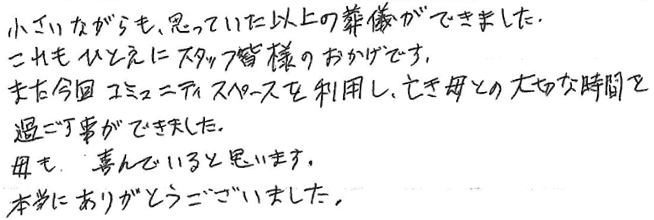 小さいながらも、思っていた以上の葬儀ができました.
これもひとえにスタッフ皆様のおかげです.
また今回コミュニティスペースを利用し、亡き母との大切な時間を
過ごす事ができました.
母も 喜んでいると思います.
本当にありがとうございました.